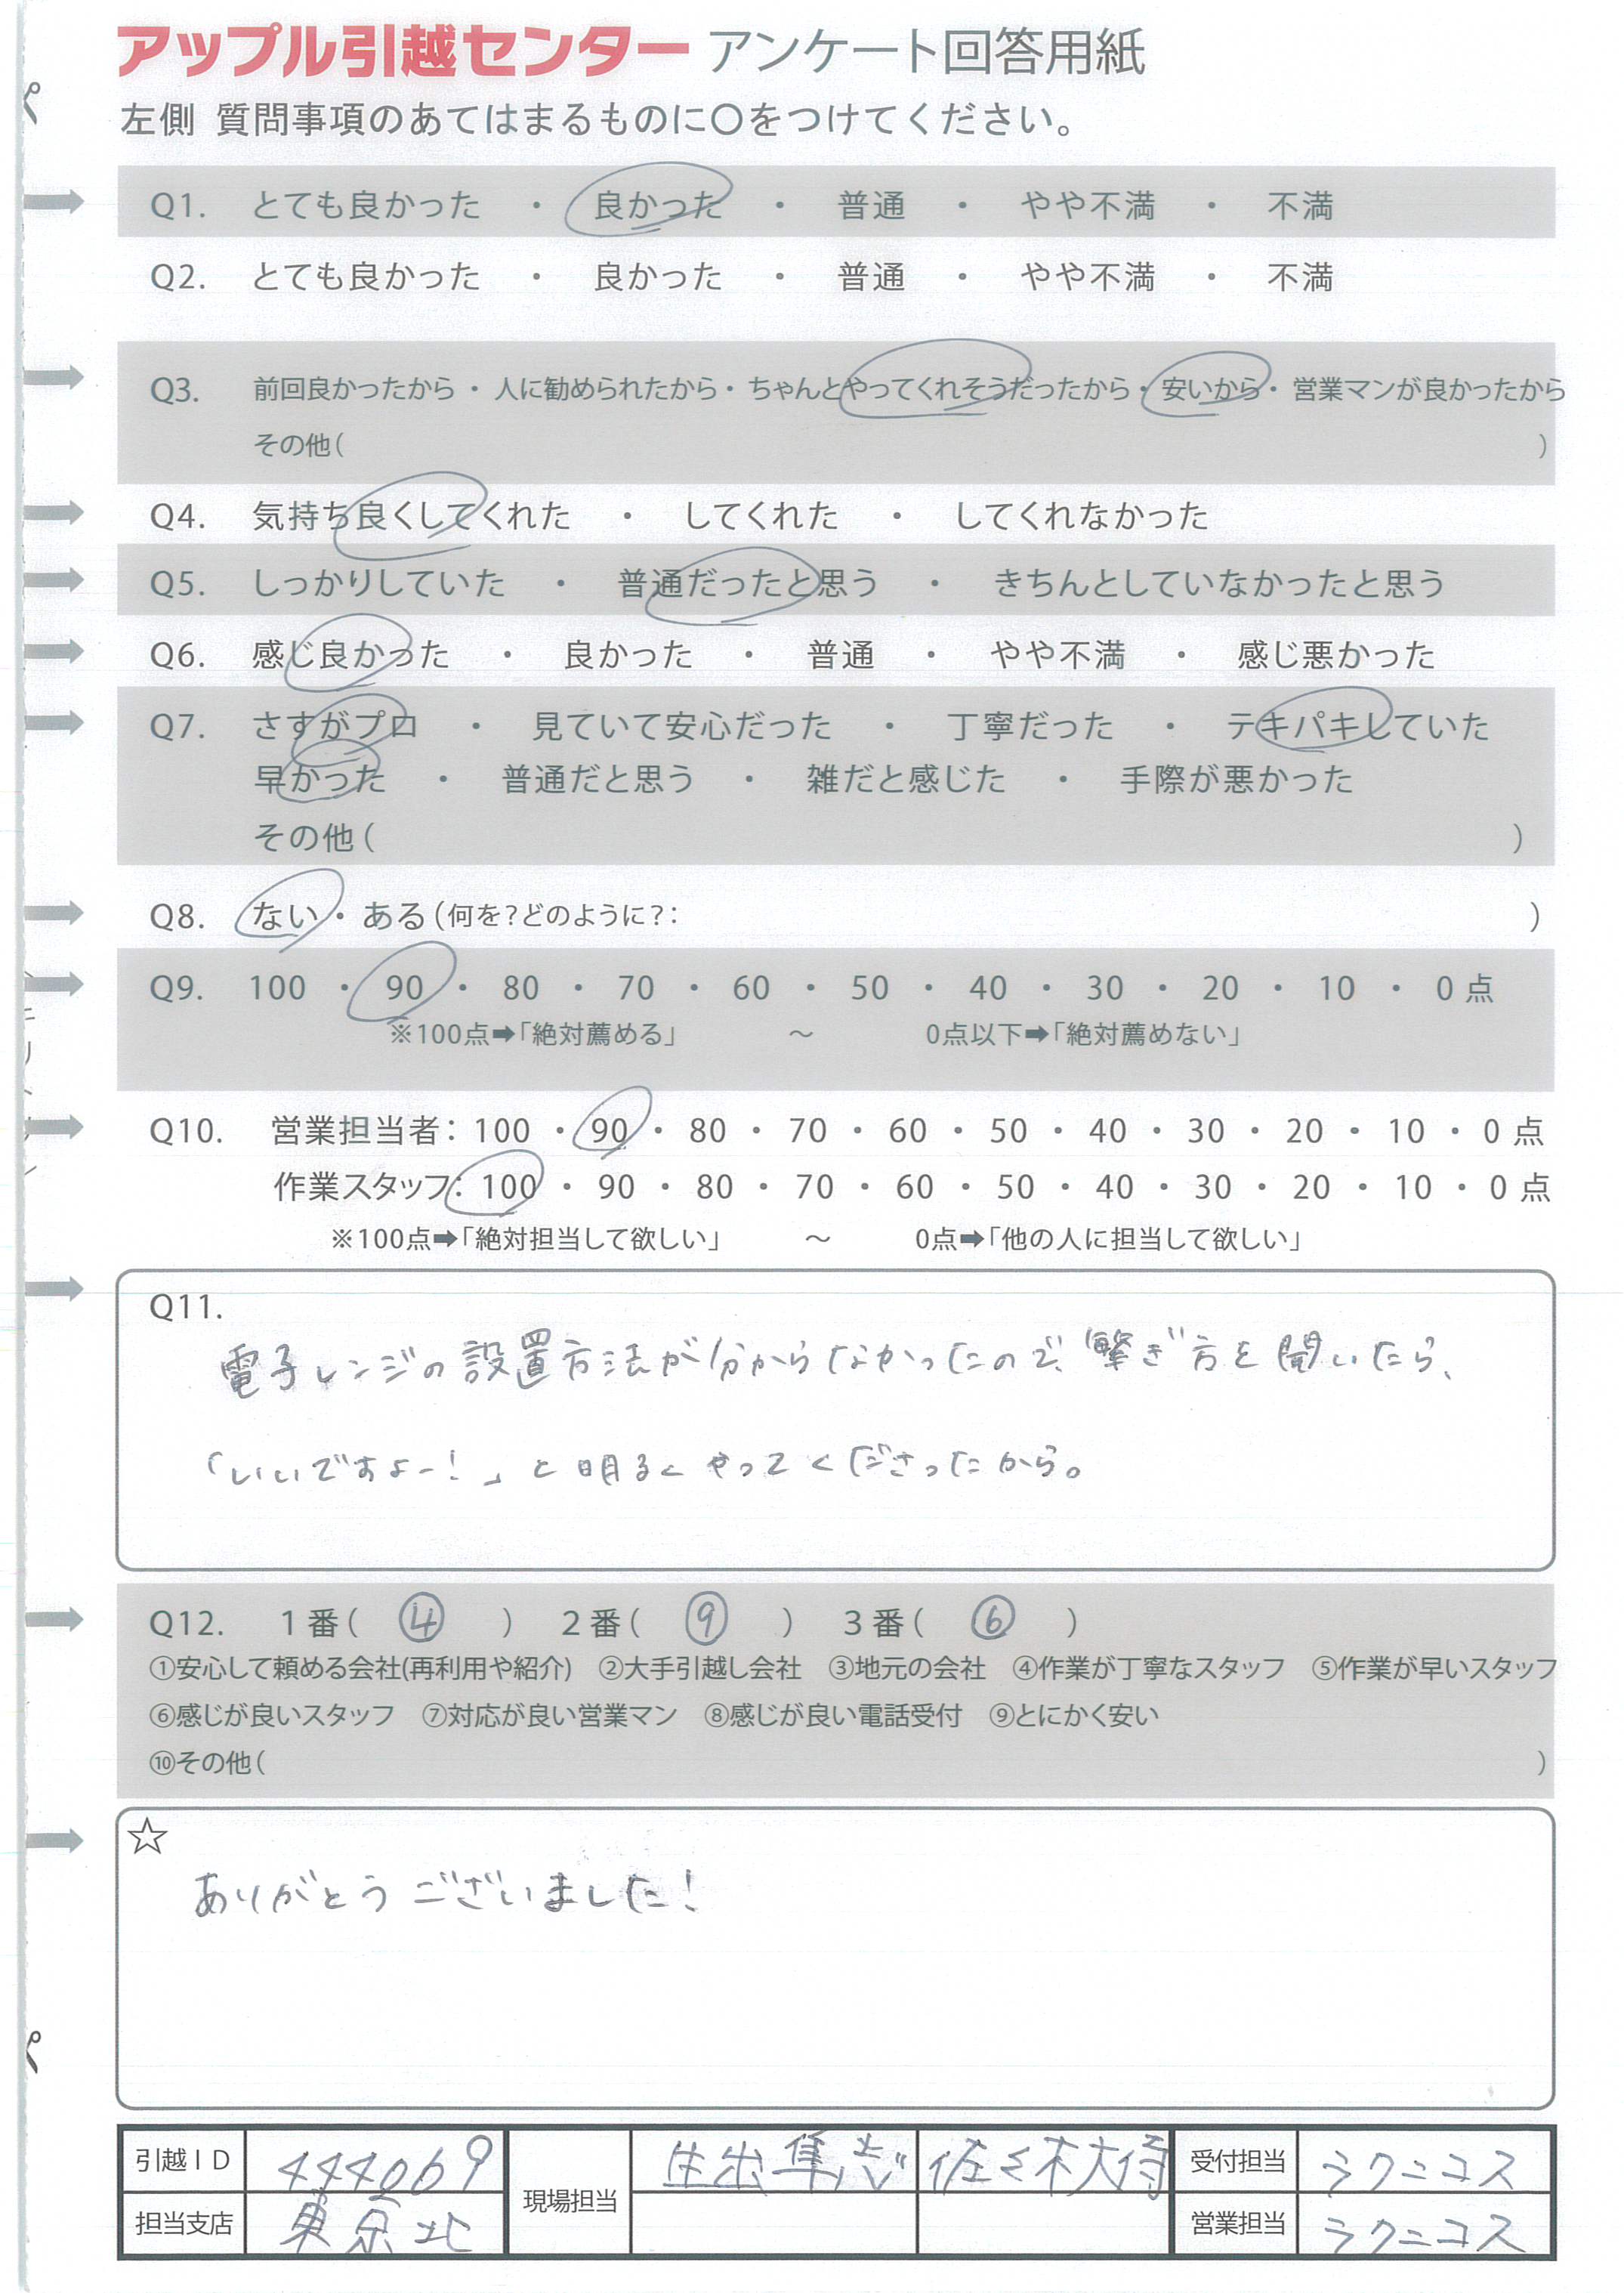 アップル引越センター アンケート回答用紙
左側 質問事項のあてはまるものに〇をつけてください。
Q1. とても良かった ・ 良かった ・ 普通 ・ やや不満 ・ 不満
Q2. とても良かった ・ 良かった ・ 普通 ・ やや不満 ・ 不満
Q3. 前回良かったから・人に勧められたから・ちゃんとやってくれそうだったから・安いから・営業マンが良かったから
その他( )
Q4. 気持ち良くしてくれた ・ してくれた ・ してくれなかった
Q5. しっかりしていた ・ 普通だったと思う ・ きちんとしていなかったと思う
Q6. 感じ良かった ・ 良かった ・ 普通 ・ やや不満 ・ 感じ悪かった
Q7. さすがプロ ・ 見ていて安心だった ・ 丁寧だった ・ テキパキしていた
早かった ・ 普通だと思う ・ 雑だと感じた ・ 手際が悪かった
その他( )
Q8. ない・ある(何を?どのように?: )
Q9. 100 ・ 90 ・ 80 ・ 70 ・ 60 ・ 50 ・ 40 ・ 30 ・ 20 ・ 10 ・ 0 点
※100点➡「絶対薦める」 ～ 0点以下➡「絶対薦めない」
Q10. 営業担当者: 100 ・ 90 ・ 80 ・ 70 ・ 60 ・ 50 ・ 40 ・ 30 ・ 20 ・ 10 ・ 0 点
作業スタッフ: 100 ・ 90 ・ 80 ・ 70 ・ 60 ・ 50 ・ 40 ・ 30 ・ 20 ・ 10 ・ 0 点
※100点➡「絶対担当して欲しい」 ～ 0点➡「他の人に担当して欲しい」
Q11.
電子レンジの設置方法が分からなかったので、繋ぎ方を聞いたら、
「いいですよー!」と明るくやってくださったから。
Q12. 1番( ④ ) 2番( ⑨ ) 3番( ⑥ )
①安心して頼める会社(再利用や紹介) ②大手引越し会社 ③地元の会社 ④作業が丁寧なスタッフ ⑤作業が早いスタッフ
⑥感じが良いスタッフ ⑦対応が良い営業マン ⑧感じが良い電話受付 ⑨とにかく安い
⑩その他( )
☆
ありがとうございました!
引越ID 444069 現場担当 生出隼志 佐々木大侍 受付担当 ラクニコス
担当支店 東京北 営業担当 ラクニコス